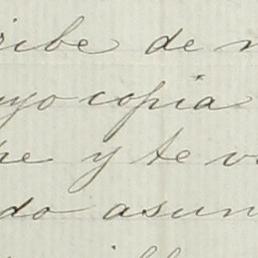 ribe de
yo copia
y te
do asun